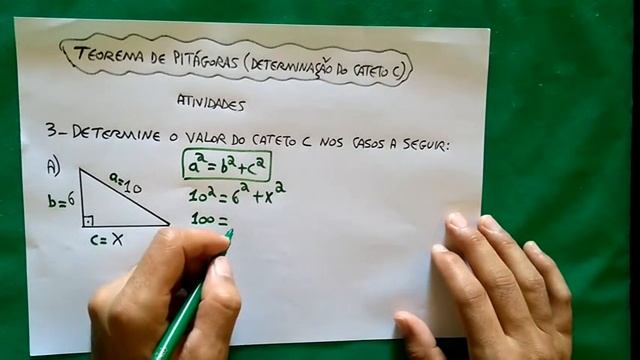 TEOREMA DE PITÁGORAS (DETERMINAÇÃO DO CATETO C)
ATIVIDADES
3- DETERMINE O VALOR DO CATETO C NOS CASOS A SEGUIR:
A)
a=10
b=6
c=X
a² = b² + c²
10² = 6² + X²
100 =